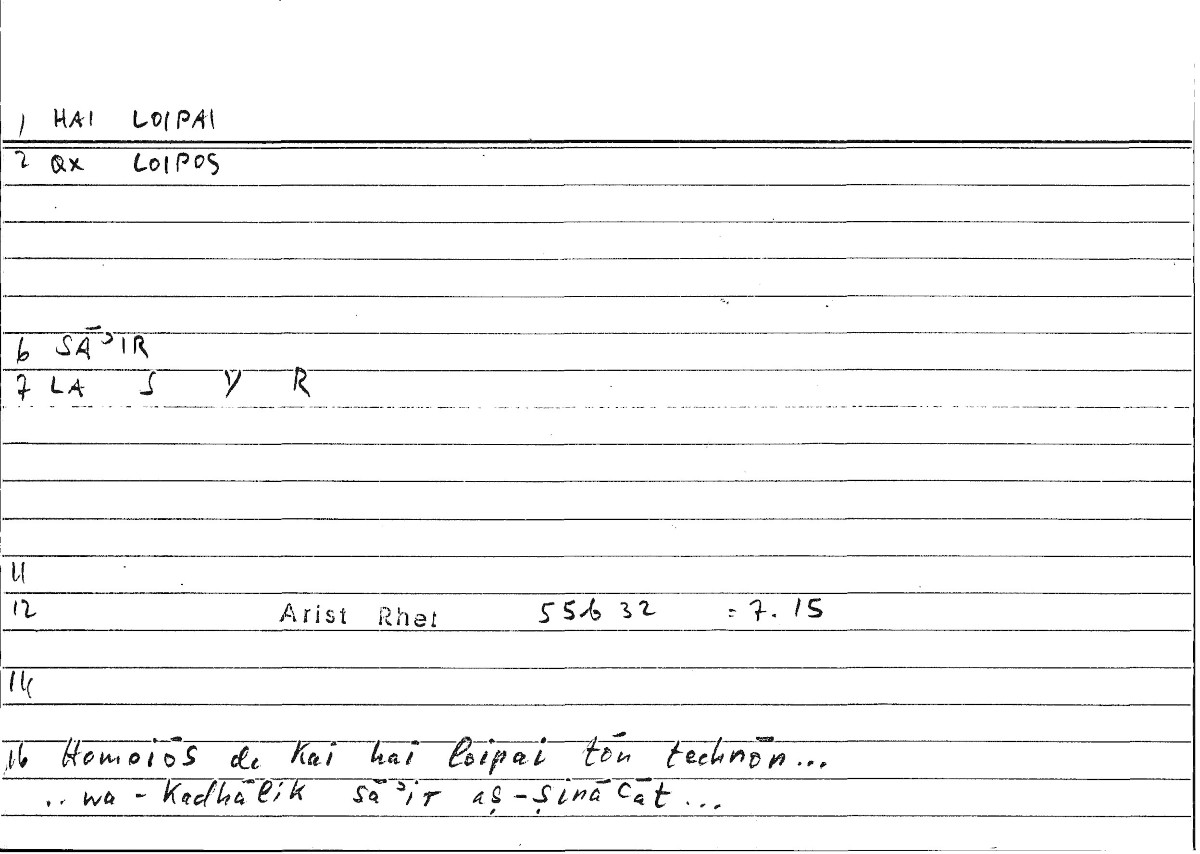 1 HAI LOIPAI
2 QX LOIPOS
6 SĀʾIR
7 LA S Y R
11
12 Arist Rhet 55b 32 = 7.15
14
16 Homoiōs de kai hai loipai tōn technōn...
.. wa-kadhālik sāʾir aṣ-ṣināʿāt ...